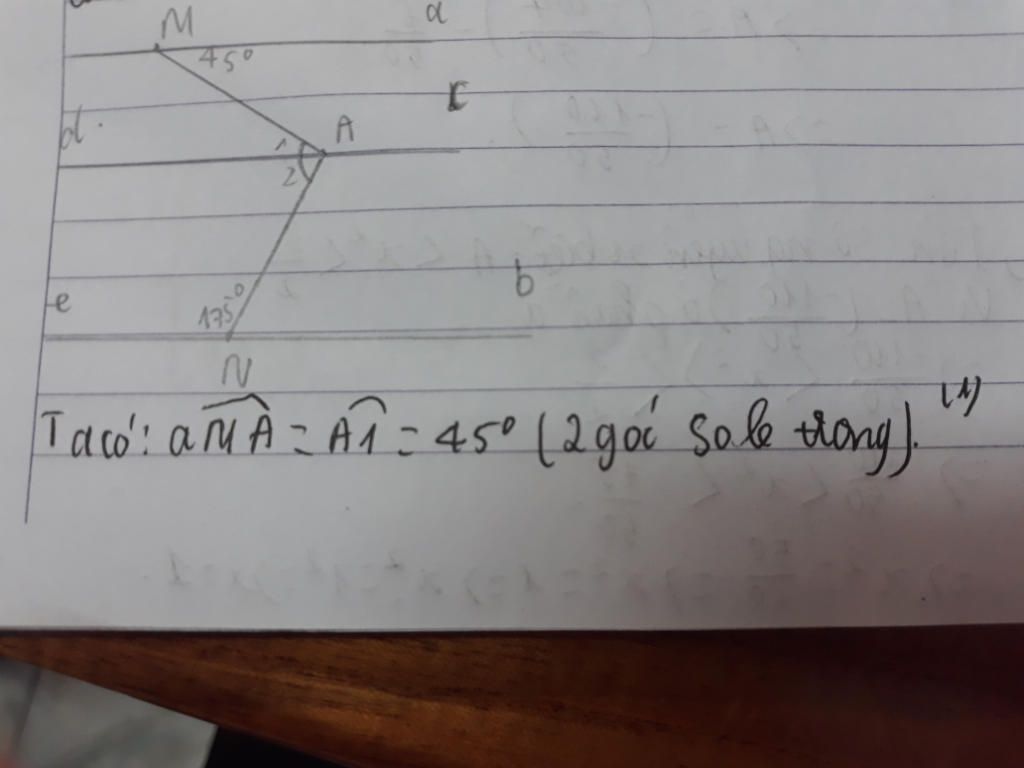 M
a
45°
c
d
A
1
2
e
b
175°
N
Ta có: aMA = A1 = 45° (2 góc sole trong). (1)